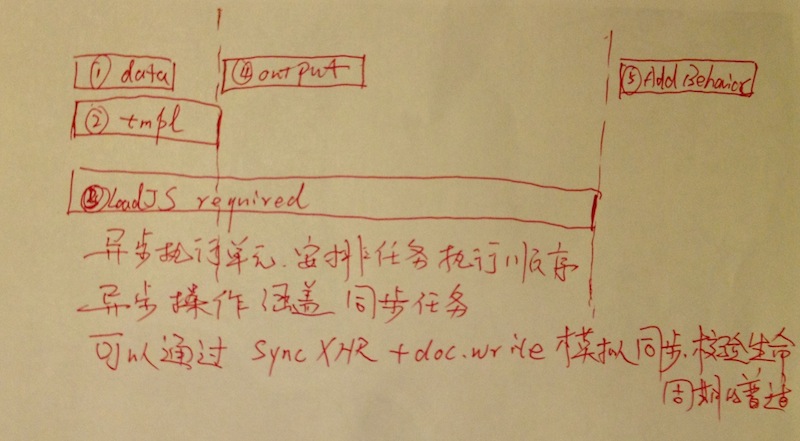 ① data ④ output ⑤ Add Behaivor
② tmpl
③ LoadJS required
异步执行单元. 安排任务执行顺序
异步操作涵盖同步任务
可以通过 Sync XHR + doc.write 模拟同步. 校验生命
周期的普适